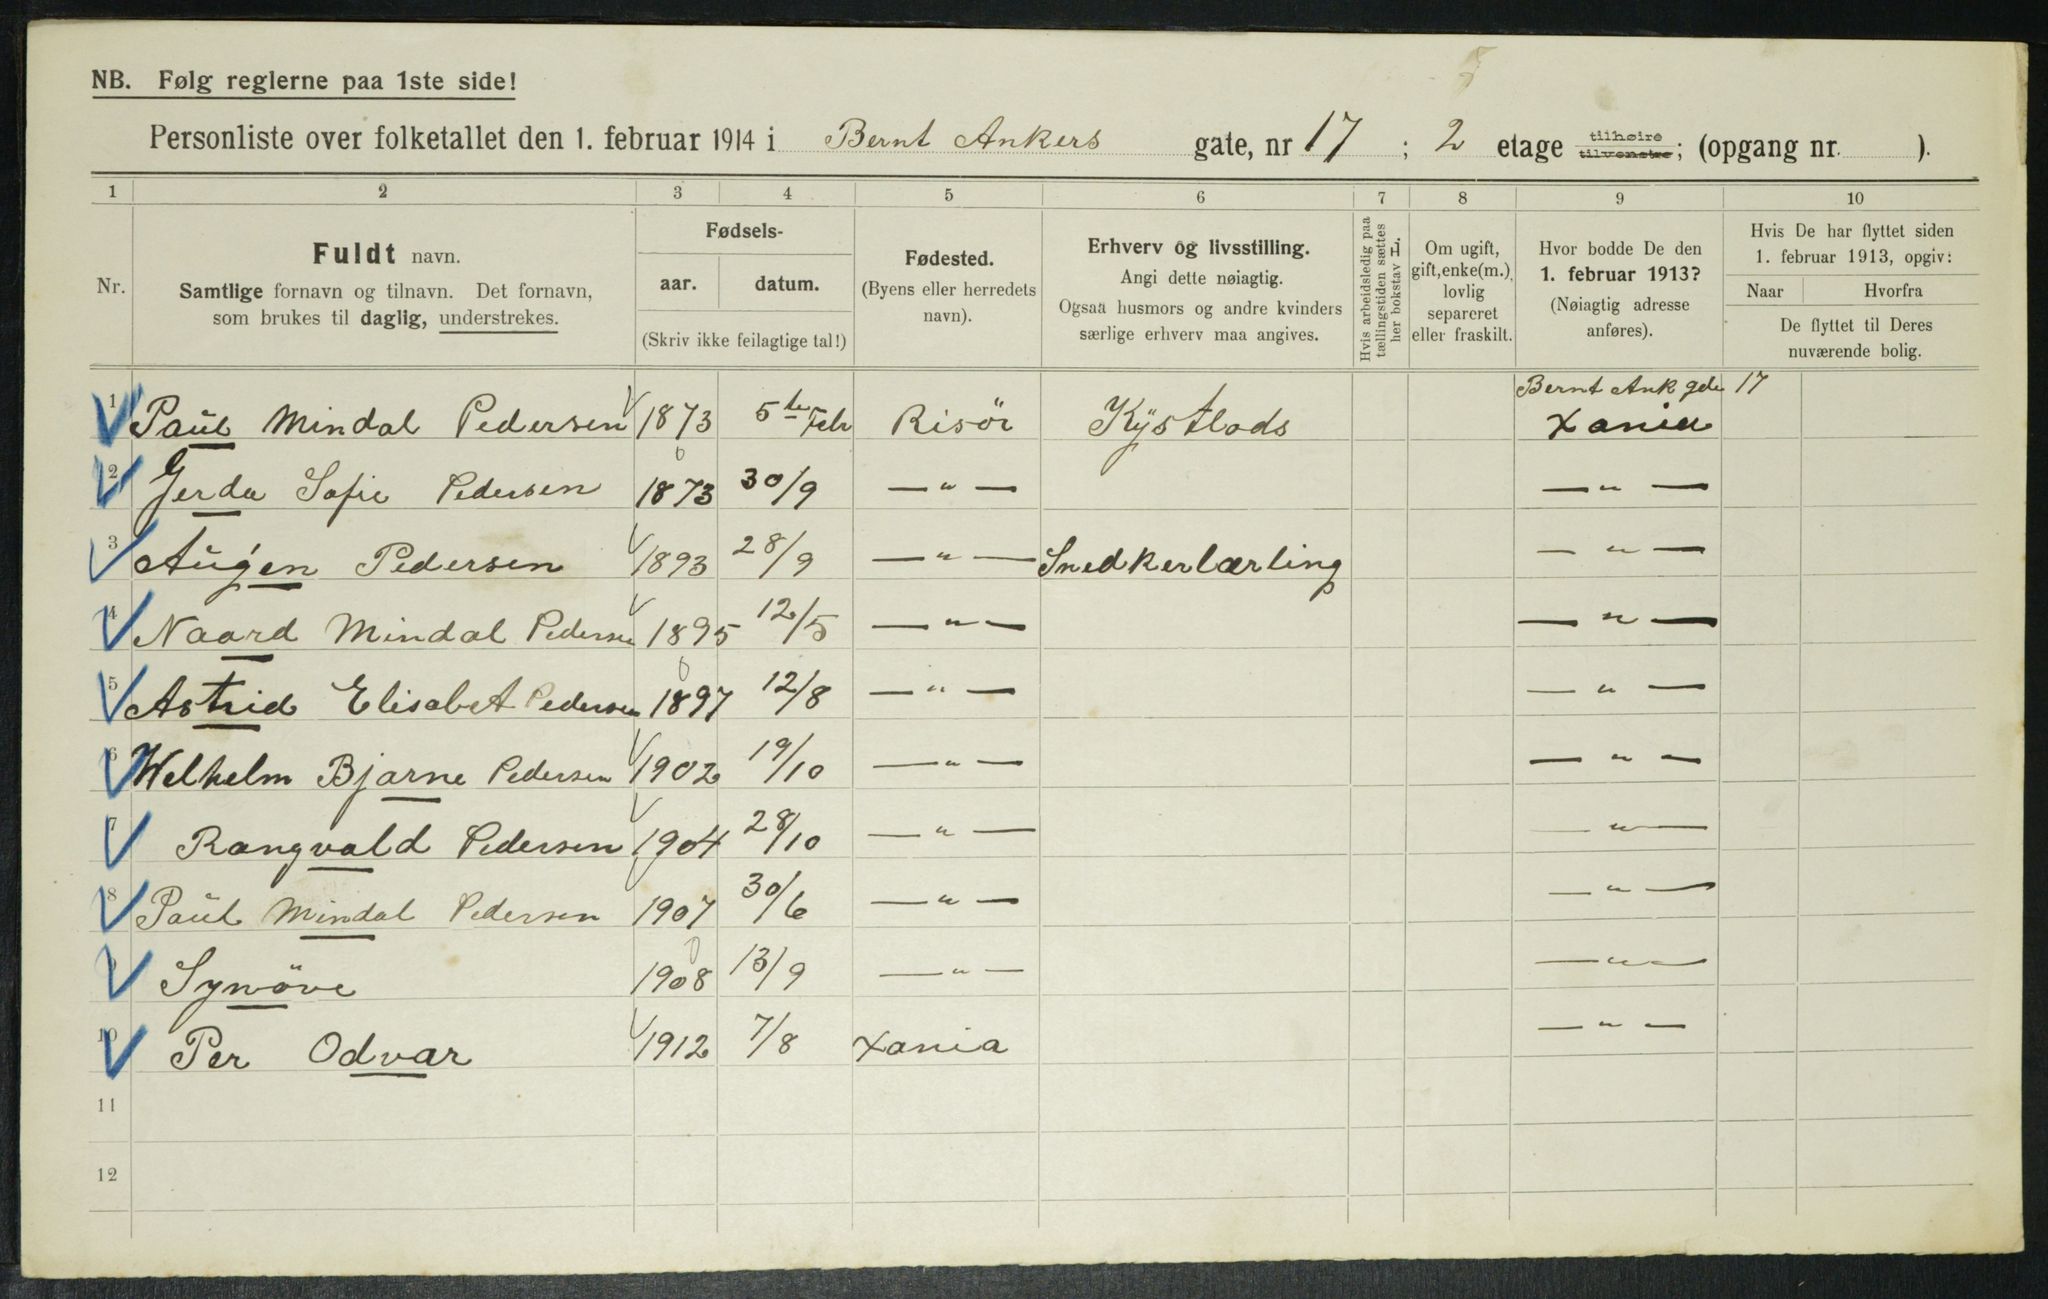 NB. Følg reglerne paa 1ste side!
Personliste over folketallet den 1. februar 1914 i Bernt Ankers gate, nr 17 ; 2 etage tilhøire tilvenstre; (opgang nr. ).
1 2 3 4 5 6 7 8 9 10
Nr.
Fuldt navn.
Samtlige fornavn og tilnavn. Det fornavn,
som brukes til daglig, understrekes.
Fødsels-
aar. datum.
(Skriv ikke feilagtige tal!)
Fødested.
(Byens eller herredets
navn).
Erhverv og livsstilling.
Angi dette nøiagtig.
Ogsaa husmors og andre kvinders
særlige erhverv maa angives.
Hvis arbeidsledig paa
tællingstiden sættes
her bokstav L.
Om ugift,
gift, enke(m.),
lovlig
separeret
eller fraskilt.
Hvor bodde De den
1. februar 1913?
(Nøiagtig adresse
anføres).
Hvis De har flyttet siden
1. februar 1913, opgiv:
Naar Hvorfra
De flyttet til Deres
nuværende bolig.
Bernt Ank gde 17
1 Paul Mindal Pedersen 1873 5te Feb Risör Kystlods Xania
2 Gerda Sofie Pedersen 1873 30/9 — " — — " —
3 Augen Pedersen 1893 28/9 — " — Snedkerlærling — " —
4 Naard Mindal Pedersen 1895 12/5 — " — — " —
5 Astrid Elisabet Pedersen 1897 12/8 — " — — " —
6 Welhelm Bjarne Pedersen 1902 19/10 — " — — " —
7 Rangvald Pedersen 1904 28/10 — " — — " —
8 Paul Mindal Pedersen 1907 30/6 — " — — " —
9 Synöve 1908 13/9 — " — — " —
10 Per Odvar 1912 7/8 Xania — " —
11
12